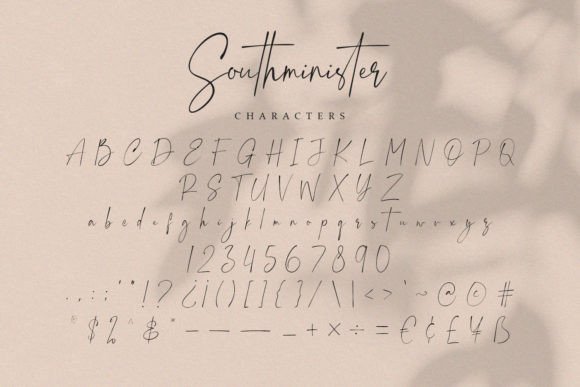 Southminister
CHARACTERS
A B C D E F G H I J K L M N O P Q
R S T U V W X Y Z
a b c d e f g h i j k l m n o p q r s t u v w x y z
1 2 3 4 5 6 7 8 9 0
. , : ; ' " ! ? ¿ ¡ ( ) [ ] { } / \ | < > ` ~ @ © #
$ ^ & * — — — _ + × ÷ = € ¢ £ ¥